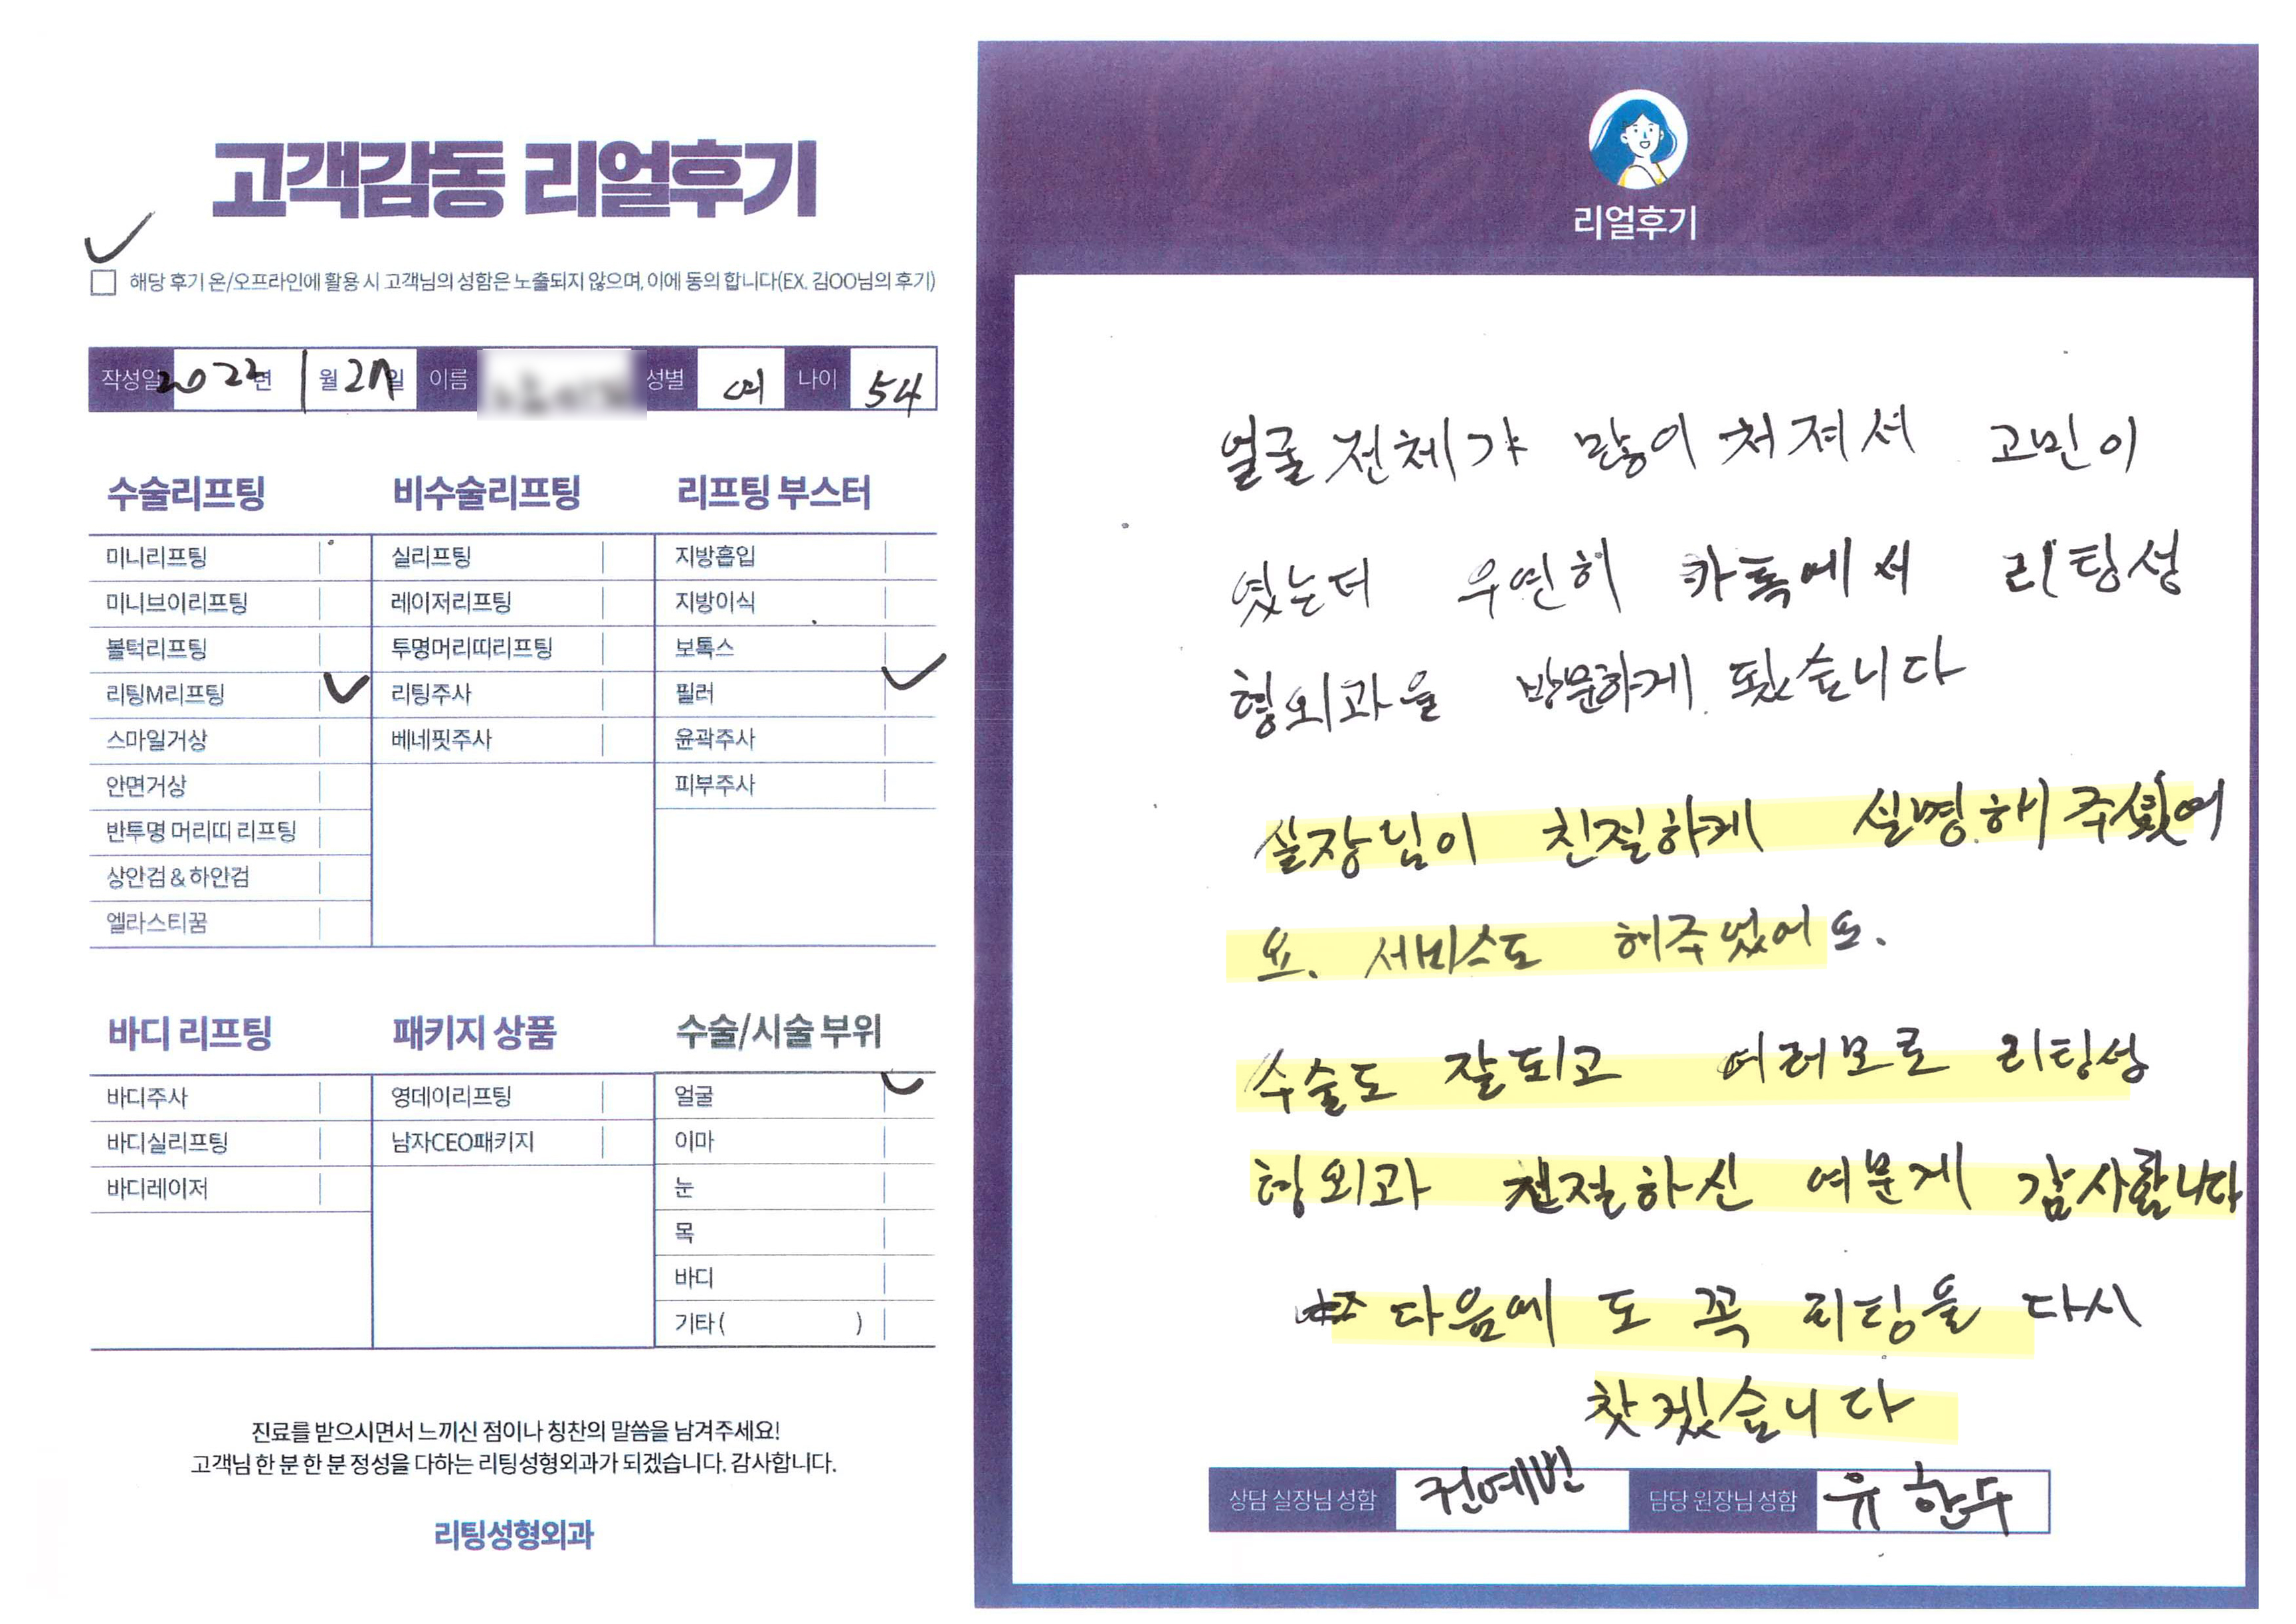 고객감동 리얼후기
해당 후기 온/오프라인에 활용 시 고객님의 성함은 노출되지 않으며, 이에 동의 합니다(EX. 김OO님의 후기)
작성일 2022년 1월 27일 이름 성별 여 나이 54
수술리프팅
미니리프팅
미니브이리프팅
볼턱리프팅
리팅M리프팅
스마일거상
안면거상
반투명 머리띠 리프팅
상안검 & 하안검
엘라스티꿈
비수술리프팅
실리프팅
레이저리프팅
투명머리띠리프팅
리팅주사
베네핏주사
리프팅 부스터
지방흡입
지방이식
보톡스
필러
윤곽주사
피부주사
바디 리프팅
바디주사
바디실리프팅
바디레이저
패키지 상품
영데이리프팅
남자CEO패키지
수술/시술 부위
얼굴
이마
눈
목
바디
기타 ( )
진료를 받으시면서 느끼신 점이나 칭찬의 말씀을 남겨주세요!
고객님 한 분 한 분 정성을 다하는 리팅성형외과가 되겠습니다. 감사합니다.
리팅성형외과
리얼후기
얼굴 전체가 많이 처져서 고민이
였는데 우연히 카톡에서 리팅성
형외과을 방문하게 됬습니다
실장님이 친절하게 설명해주셨어
요. 서비스도 해주었어요.
수술도 잘되고 여러모로 리팅성
형외과 친절하신 여분게 감사합니다
다음에 도 꼭 리팅을 다시
찾겠습니다
상담 실장님 성함 권예빈 담당 원장님 성함 유한두